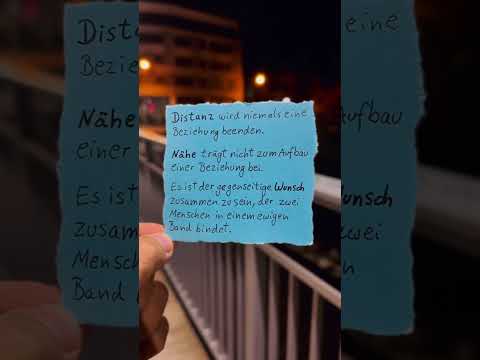 Distanz wird niemals eine
Beziehung beenden.
Nähe trägt nicht zum Aufbau
einer Beziehung bei.
Es ist der gegenseitige Wunsch
zusammen zu sein, der zwei
Menschen in einem ewigen
Band bindet.